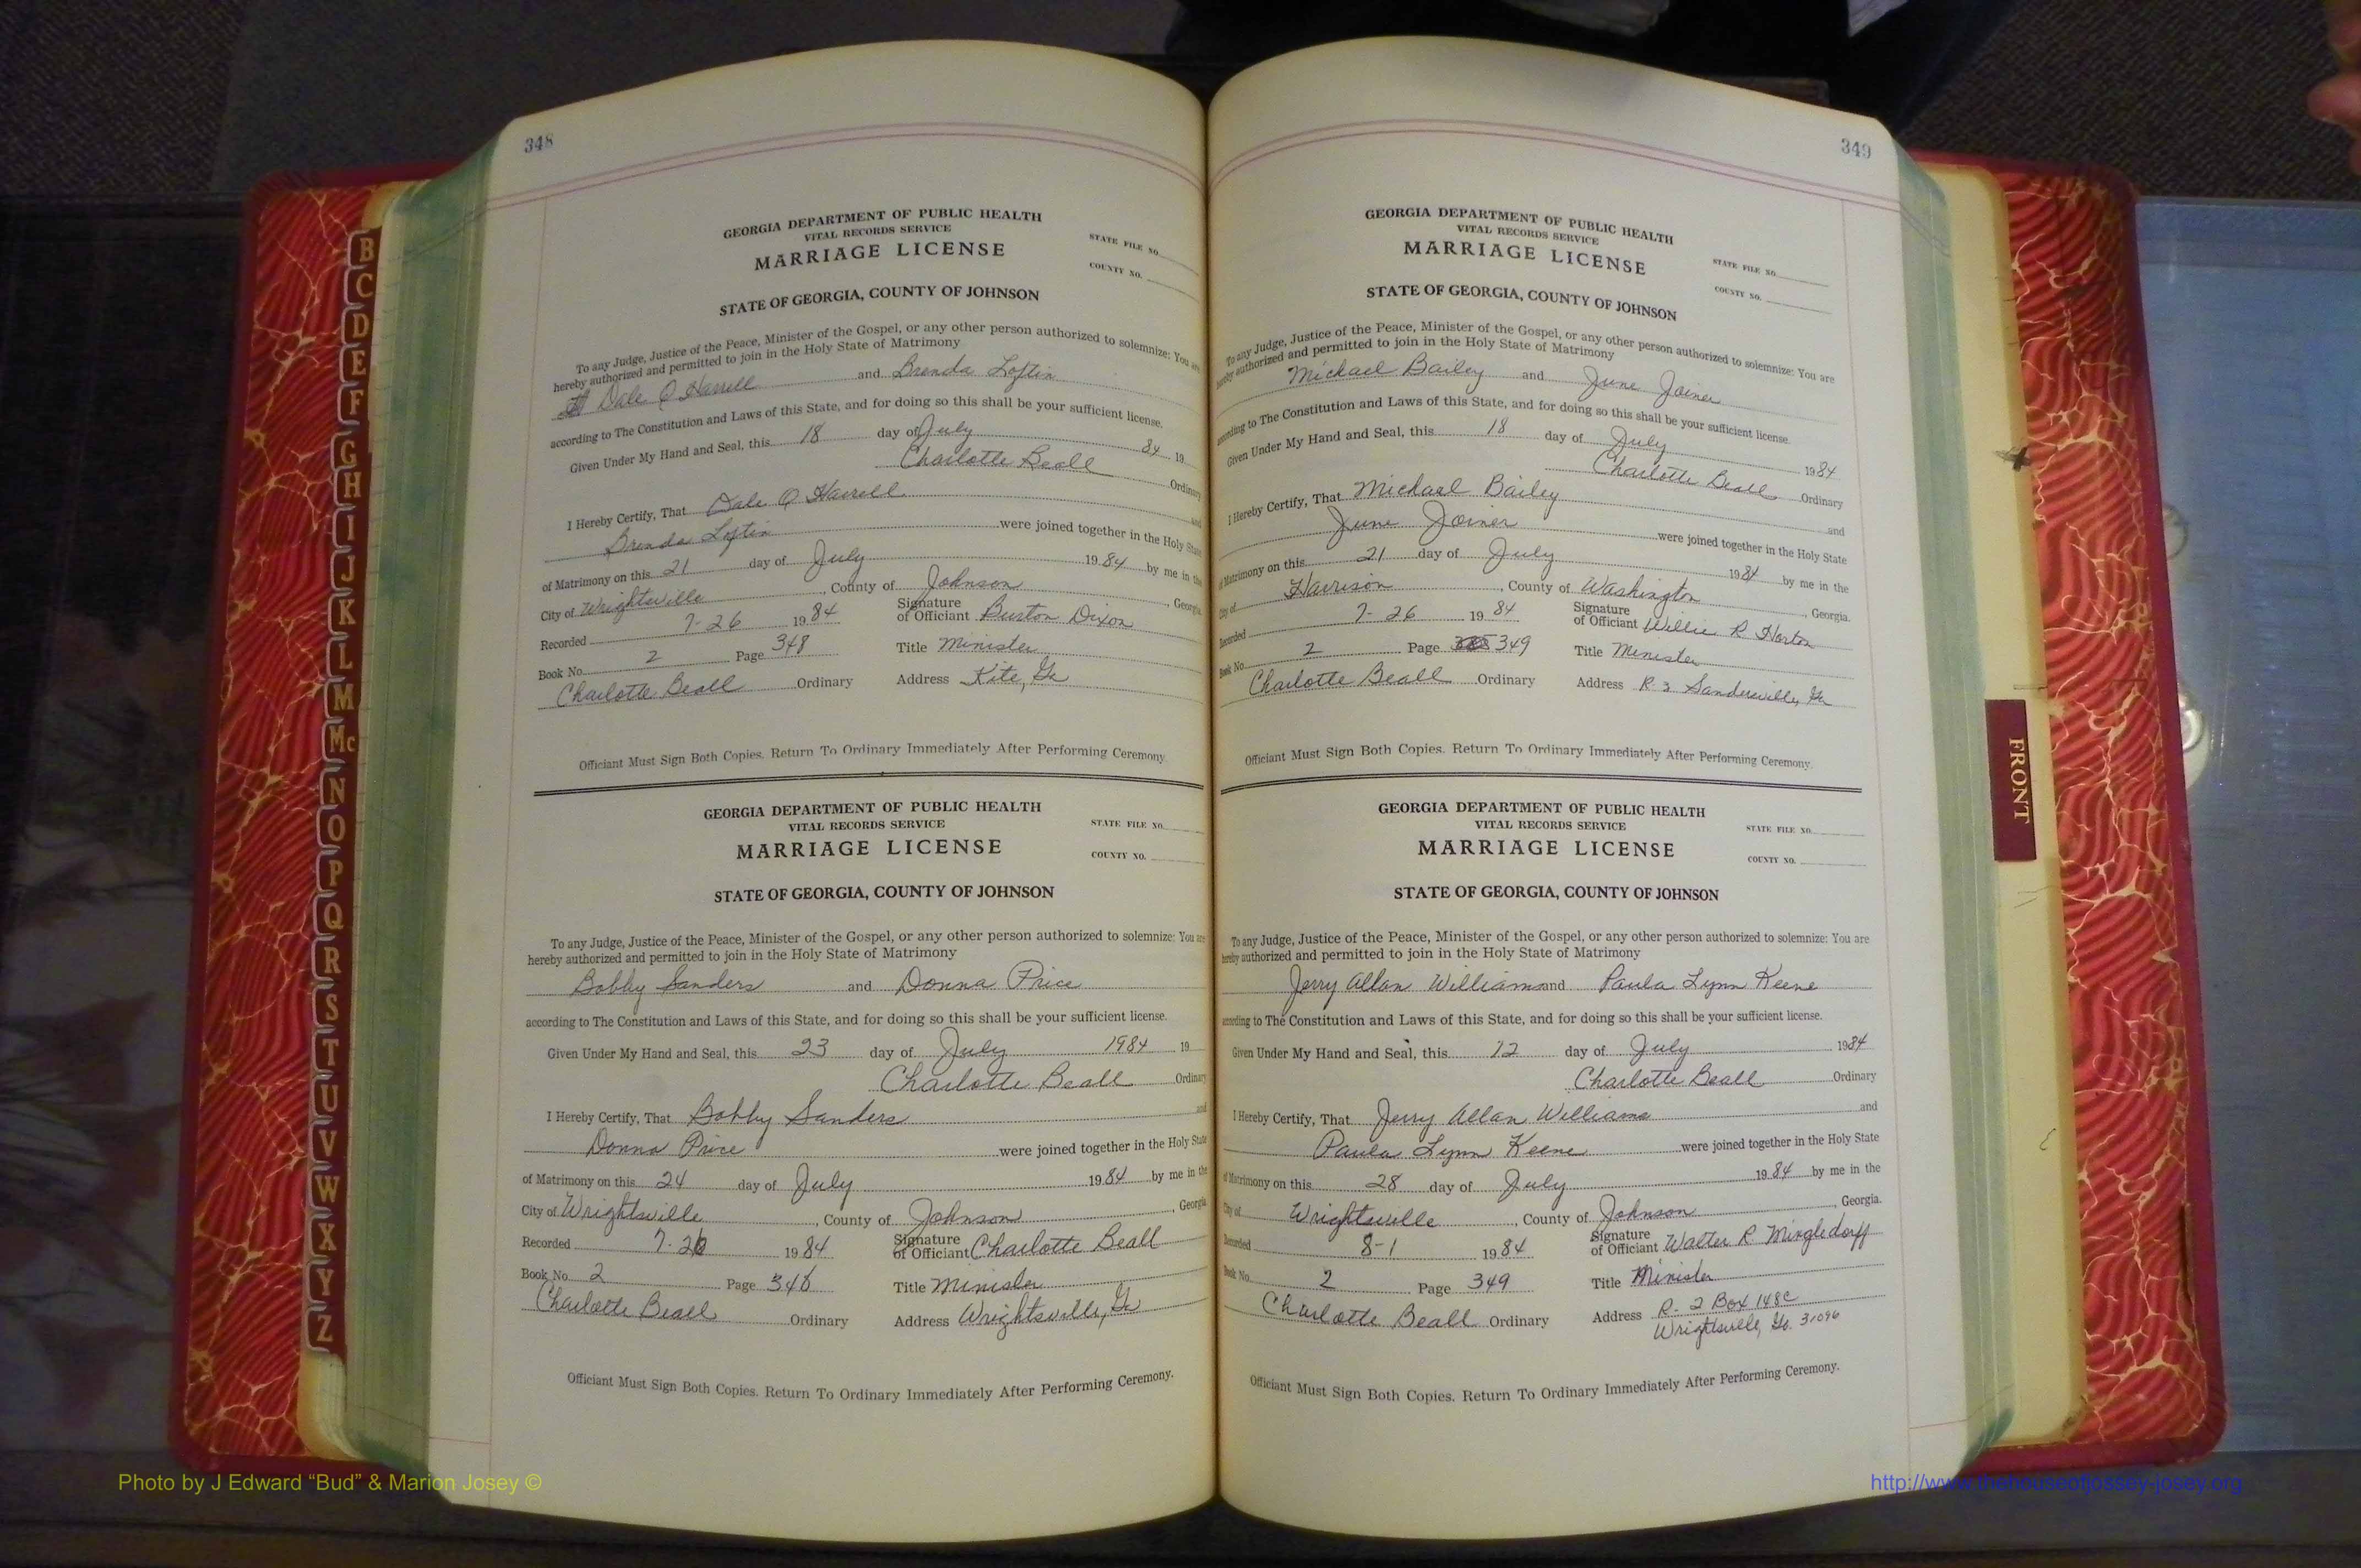 348
GEORGIA DEPARTMENT OF PUBLIC HEALTH
VITAL RECORDS SERVICE
MARRIAGE LICENSE
STATE FILE NO.
COUNTY NO.
STATE OF GEORGIA, COUNTY OF JOHNSON
To any Judge, Justice of the Peace, Minister of the Gospel, or any other person authorized to solemnize: You are
hereby authorized and permitted to join in the Holy State of Matrimony
Dale O Harrell and Brenda Loftin
according to The Constitution and Laws of this State, and for doing so this shall be your sufficient license.
Given Under My Hand and Seal, this 18 day of July 84 19
Charlotte Beall Ordinary
I Hereby Certify, That Dale O Harrell and
Brenda Loftin were joined together in the Holy State
of Matrimony on this 21 day of July 1984 by me in the
City of Wrightsville, County of Johnson, Georgia
Recorded 7-26 1984 Signature of Officiant Burton Dixon
Book No. 2 Page 348 Title Minister
Charlotte Beall Ordinary Address Kite, Ga
Officiant Must Sign Both Copies. Return To Ordinary Immediately After Performing Ceremony.
GEORGIA DEPARTMENT OF PUBLIC HEALTH
VITAL RECORDS SERVICE
MARRIAGE LICENSE
STATE FILE NO.
COUNTY NO.
STATE OF GEORGIA, COUNTY OF JOHNSON
To any Judge, Justice of the Peace, Minister of the Gospel, or any other person authorized to solemnize: You are
hereby authorized and permitted to join in the Holy State of Matrimony
Bobby Sanders and Donna Price
according to The Constitution and Laws of this State, and for doing so this shall be your sufficient license.
Given Under My Hand and Seal, this 23 day of July 1984 19
Charlotte Beall Ordinary
I Hereby Certify, That Bobby Sanders and
Donna Price were joined together in the Holy State
of Matrimony on this 24 day of July 1984 by me in the
City of Wrightsville, County of Johnson, Georgia
Recorded 7-26 1984 Signature of Officiant Charlotte Beall
Book No. 2 Page 348 Title Minister
Charlotte Beall Ordinary Address Wrightsville, Ga
Officiant Must Sign Both Copies. Return To Ordinary Immediately After Performing Ceremony.
349
GEORGIA DEPARTMENT OF PUBLIC HEALTH
VITAL RECORDS SERVICE
MARRIAGE LICENSE
STATE FILE NO.
COUNTY NO.
STATE OF GEORGIA, COUNTY OF JOHNSON
To any Judge, Justice of the Peace, Minister of the Gospel, or any other person authorized to solemnize: You are
hereby authorized and permitted to join in the Holy State of Matrimony
Michael Bailey and June Joiner
according to The Constitution and Laws of this State, and for doing so this shall be your sufficient license.
Given Under My Hand and Seal, this 18 day of July 1984
Charlotte Beall Ordinary
I Hereby Certify, That Michael Bailey and
June Joiner were joined together in the Holy State
of Matrimony on this 21 day of July 1984 by me in the
City of Harrison, County of Washington, Georgia.
Recorded 7-26 1984 Signature of Officiant Willie R Horton
Book No. 2 Page 349 Title Minister
Charlotte Beall Ordinary Address R-3 Sandersville, Ga
Officiant Must Sign Both Copies. Return To Ordinary Immediately After Performing Ceremony.
GEORGIA DEPARTMENT OF PUBLIC HEALTH
VITAL RECORDS SERVICE
MARRIAGE LICENSE
STATE FILE NO.
COUNTY NO.
STATE OF GEORGIA, COUNTY OF JOHNSON
To any Judge, Justice of the Peace, Minister of the Gospel, or any other person authorized to solemnize: You are
hereby authorized and permitted to join in the Holy State of Matrimony
Jerry Allan Williams and Paula Lynn Keene
according to The Constitution and Laws of this State, and for doing so this shall be your sufficient license.
Given Under My Hand and Seal, this 12 day of July 1984
Charlotte Beall Ordinary
I Hereby Certify, That Jerry Allan Williams and
Paula Lynn Keene were joined together in the Holy State
of Matrimony on this 28 day of July 1984 by me in the
City of Wrightsville, County of Johnson, Georgia.
Recorded 8-1 1984 Signature of Officiant Walter R Mingledorff
Book No. 2 Page 349 Title Minister
Charlotte Beall Ordinary Address R-2 Box 148C
Wrightsville, Ga. 31096
Officiant Must Sign Both Copies. Return To Ordinary Immediately After Performing Ceremony.
B
C
D
E
F
G
H
I
J
K
L
M
Mc
N
O
P
Q
R
S
T
U
V
W
X
Y
Z
FRONT
Photo by J Edward “Bud” & Marion Josey ©
http://www.thehouseofjossey-josey.org